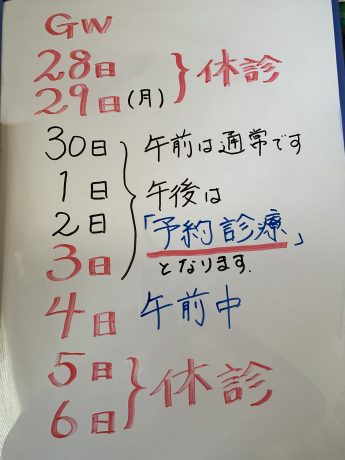 GW
28日
29日(月) 休診
30日 午前は通常です
1日 午後は
2日 「予約診療」
3日 となります.
4日 午前中
5日
6日 休診